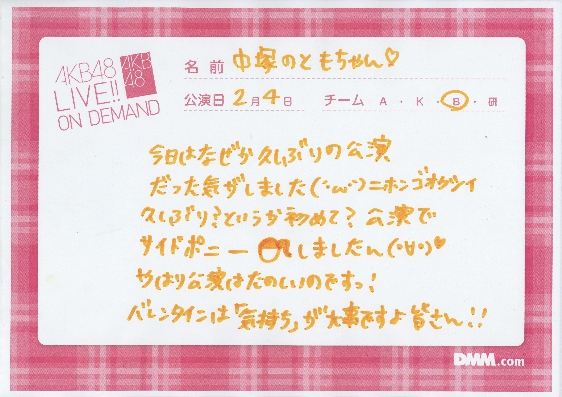 AKB48
LIVE!!
ON DEMAND
AKB
48
名前 中塚のともちゃん♡
公演日 2月4日 チーム A・K・B・研
今日はなぜか久しぶりの公演
だった気がしました(・ω・)ニホンゴオカシイ
久しぶり?というか初めて?公演で
サイドポニーしましたん(・∀・)♥
やはり公演はたのしいのですっ!
バレンタインは「気持ち」が大事ですよ皆さん!!
DMM.com